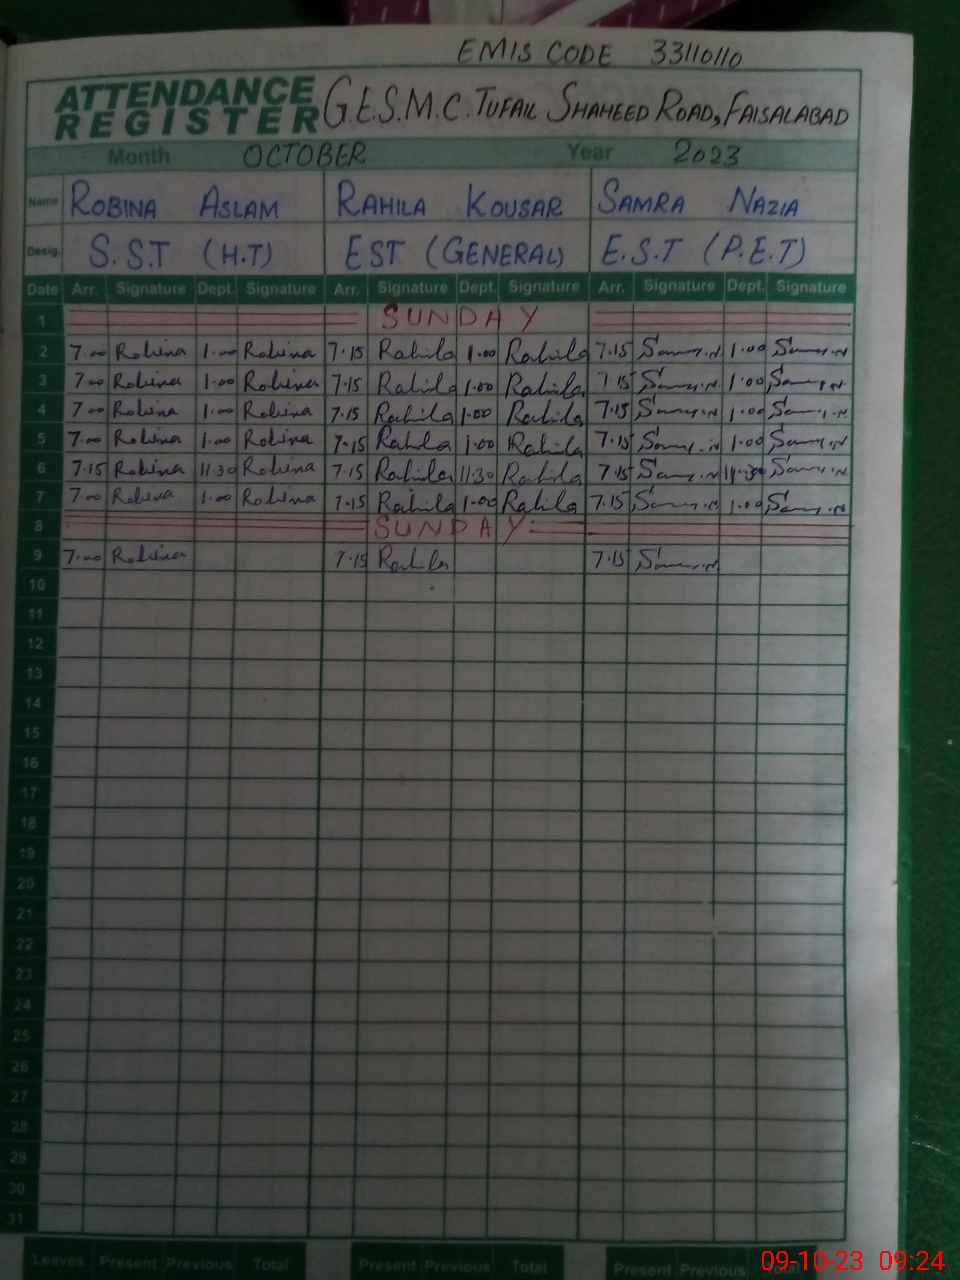 EMIS CODE 33110110
ATTENDANCE REGISTER G.E.S.M.C. TUFAIL SHAHEED ROAD, FAISALABAD
Month OCTOBER Year 2023
Name ROBINA ASLAM RAHILA KOUSAR SAMRA NAZIA
Desig. S.S.T (H.T) EST (GENERAL) E.S.T (P.E.T)
Date Arr. Signature Dept. Signature Arr. Signature Dept. Signature Arr. Signature Dept. Signature
1 SUNDAY
2 7.00 Robina 1.00 Robina 7.15 Rahila 1.00 Rahila 7.15 1.00
3 7.00 Robina 1.00 Robina 7.15 Rahila 1.00 Rahila 7.15 1.00
4 7.00 Robina 1.00 Robina 7.15 Rahila 1.00 Rahila 7.15 1.00
5 7.00 Robina 1.00 Robina 7.15 Rahila 1.00 Rahila 7.15 1.00
6 7.15 Robina 11.30 Robina 7.15 Rahila 11.30 Rahila 7.15 11.30
7 7.00 Robina 1.00 Robina 7.15 Rahila 1.00 Rahila 7.15 1.00
8 SUNDAY
9 7.00 Robina 7.15 Rahila 7.15
10
11
12
13
14
15
16
17
18
19
20
21
22
23
24
25
26
27
28
29
30
31
Leaves Present Previous Total Present Previous Total Present Previous
09-10-23 09:24